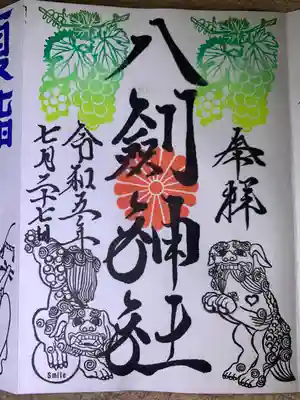 奉拝
八剱神社
令和五年
七月二十七日
夏詣
Smile